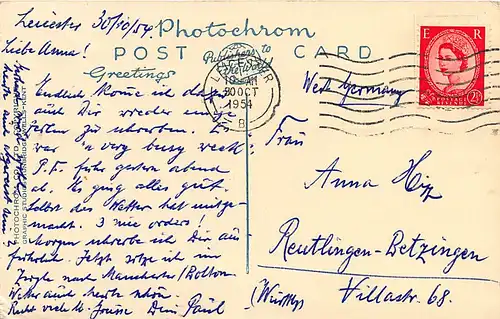 Leicester 30/10/54
Photochrom
Publishers to
POST CARD
Greetings
Liebe Anna!
Endlich komme ich dazu
auch Dir wieder einige
Zeilen zu schreiben. Es
war "a very busy week"
P.F. fuhr gestern abend
ab. Es ging alles gut.
Selbst das Wetter hat mitge-
macht. 3 nice orders!
Morgen schreibe ich Dir aus-
führlich. Jetzt sitze ich im
Zuge nach Manchester/Bolton.
Wetter auch heute schön.
Recht viele Grüsse Dein Paul
30 OCT
1954
B
E R
West Germany
Frau
Anna
Reutlingen-Betzingen
Villastr. 68.